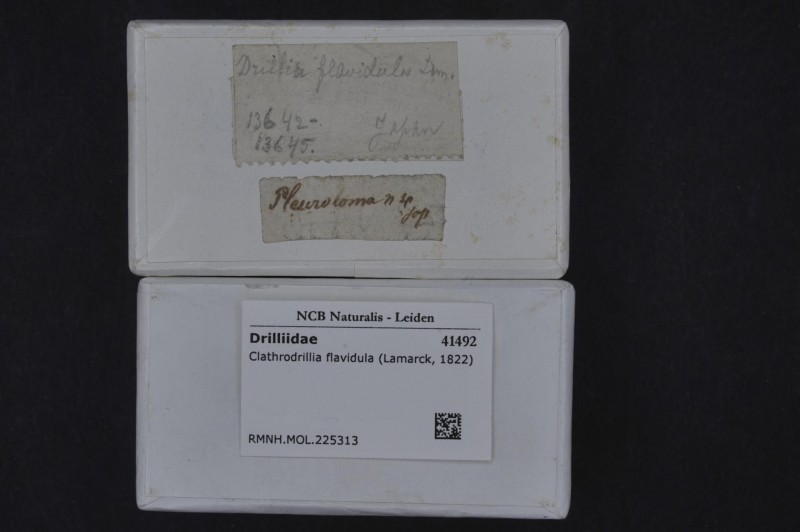 Drillia flavidula Lam.
13642-
13645.
Japan
Pleurotoma n sp
Jap
NCB Naturalis - Leiden
Drilliidae 41492
Clathrodrillia flavidula (Lamarck, 1822)
RMNH.MOL.225313